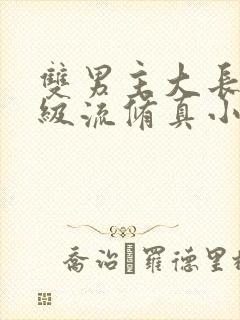 雙男主大長
級流脩真小
喬治·羅德里